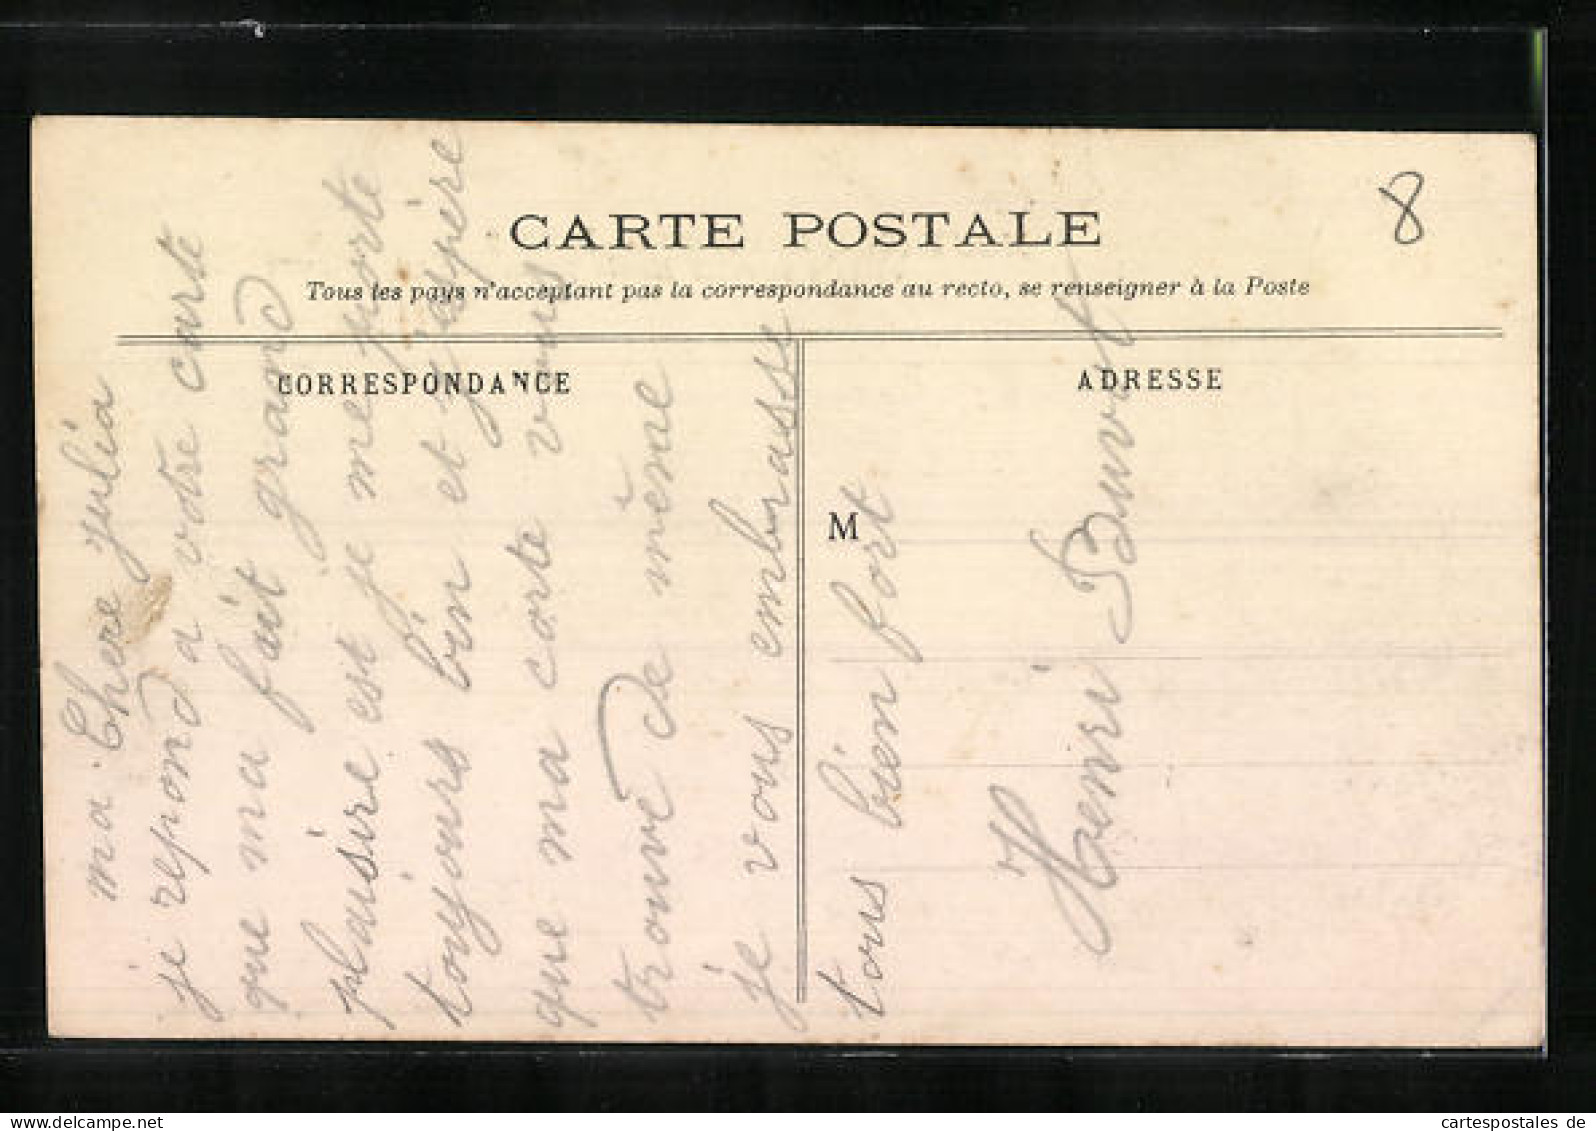 CARTE POSTALE
Tous les pays n'acceptant pas la correspondance au recto, se renseigner à la Poste
CORRESPONDANCE
ADRESSE
M
8
ma Chere julia
je repond a votre carte
que ma fait grand
plaisire est je me porte
toujours bien et j'aspére
que ma carte vous
trouve de même
je vous embrasse
tous bien fort
Henri
delcampe.net
cartespostales de